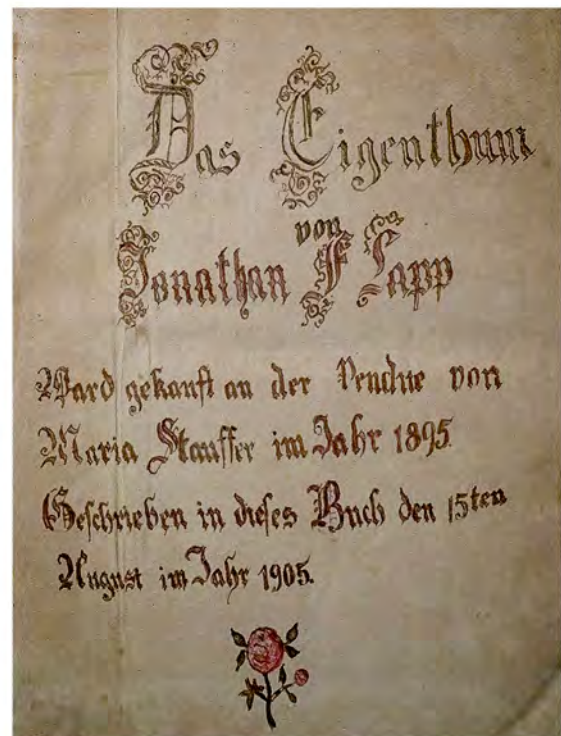 Das Eigenthum
von
Jonathan F Lapp
Ward gekauft an der Vendue von
Maria Stauffer im Jahr 1895.
Geschrieben in dieses Buch den 15ten
August im Jahr 1905.